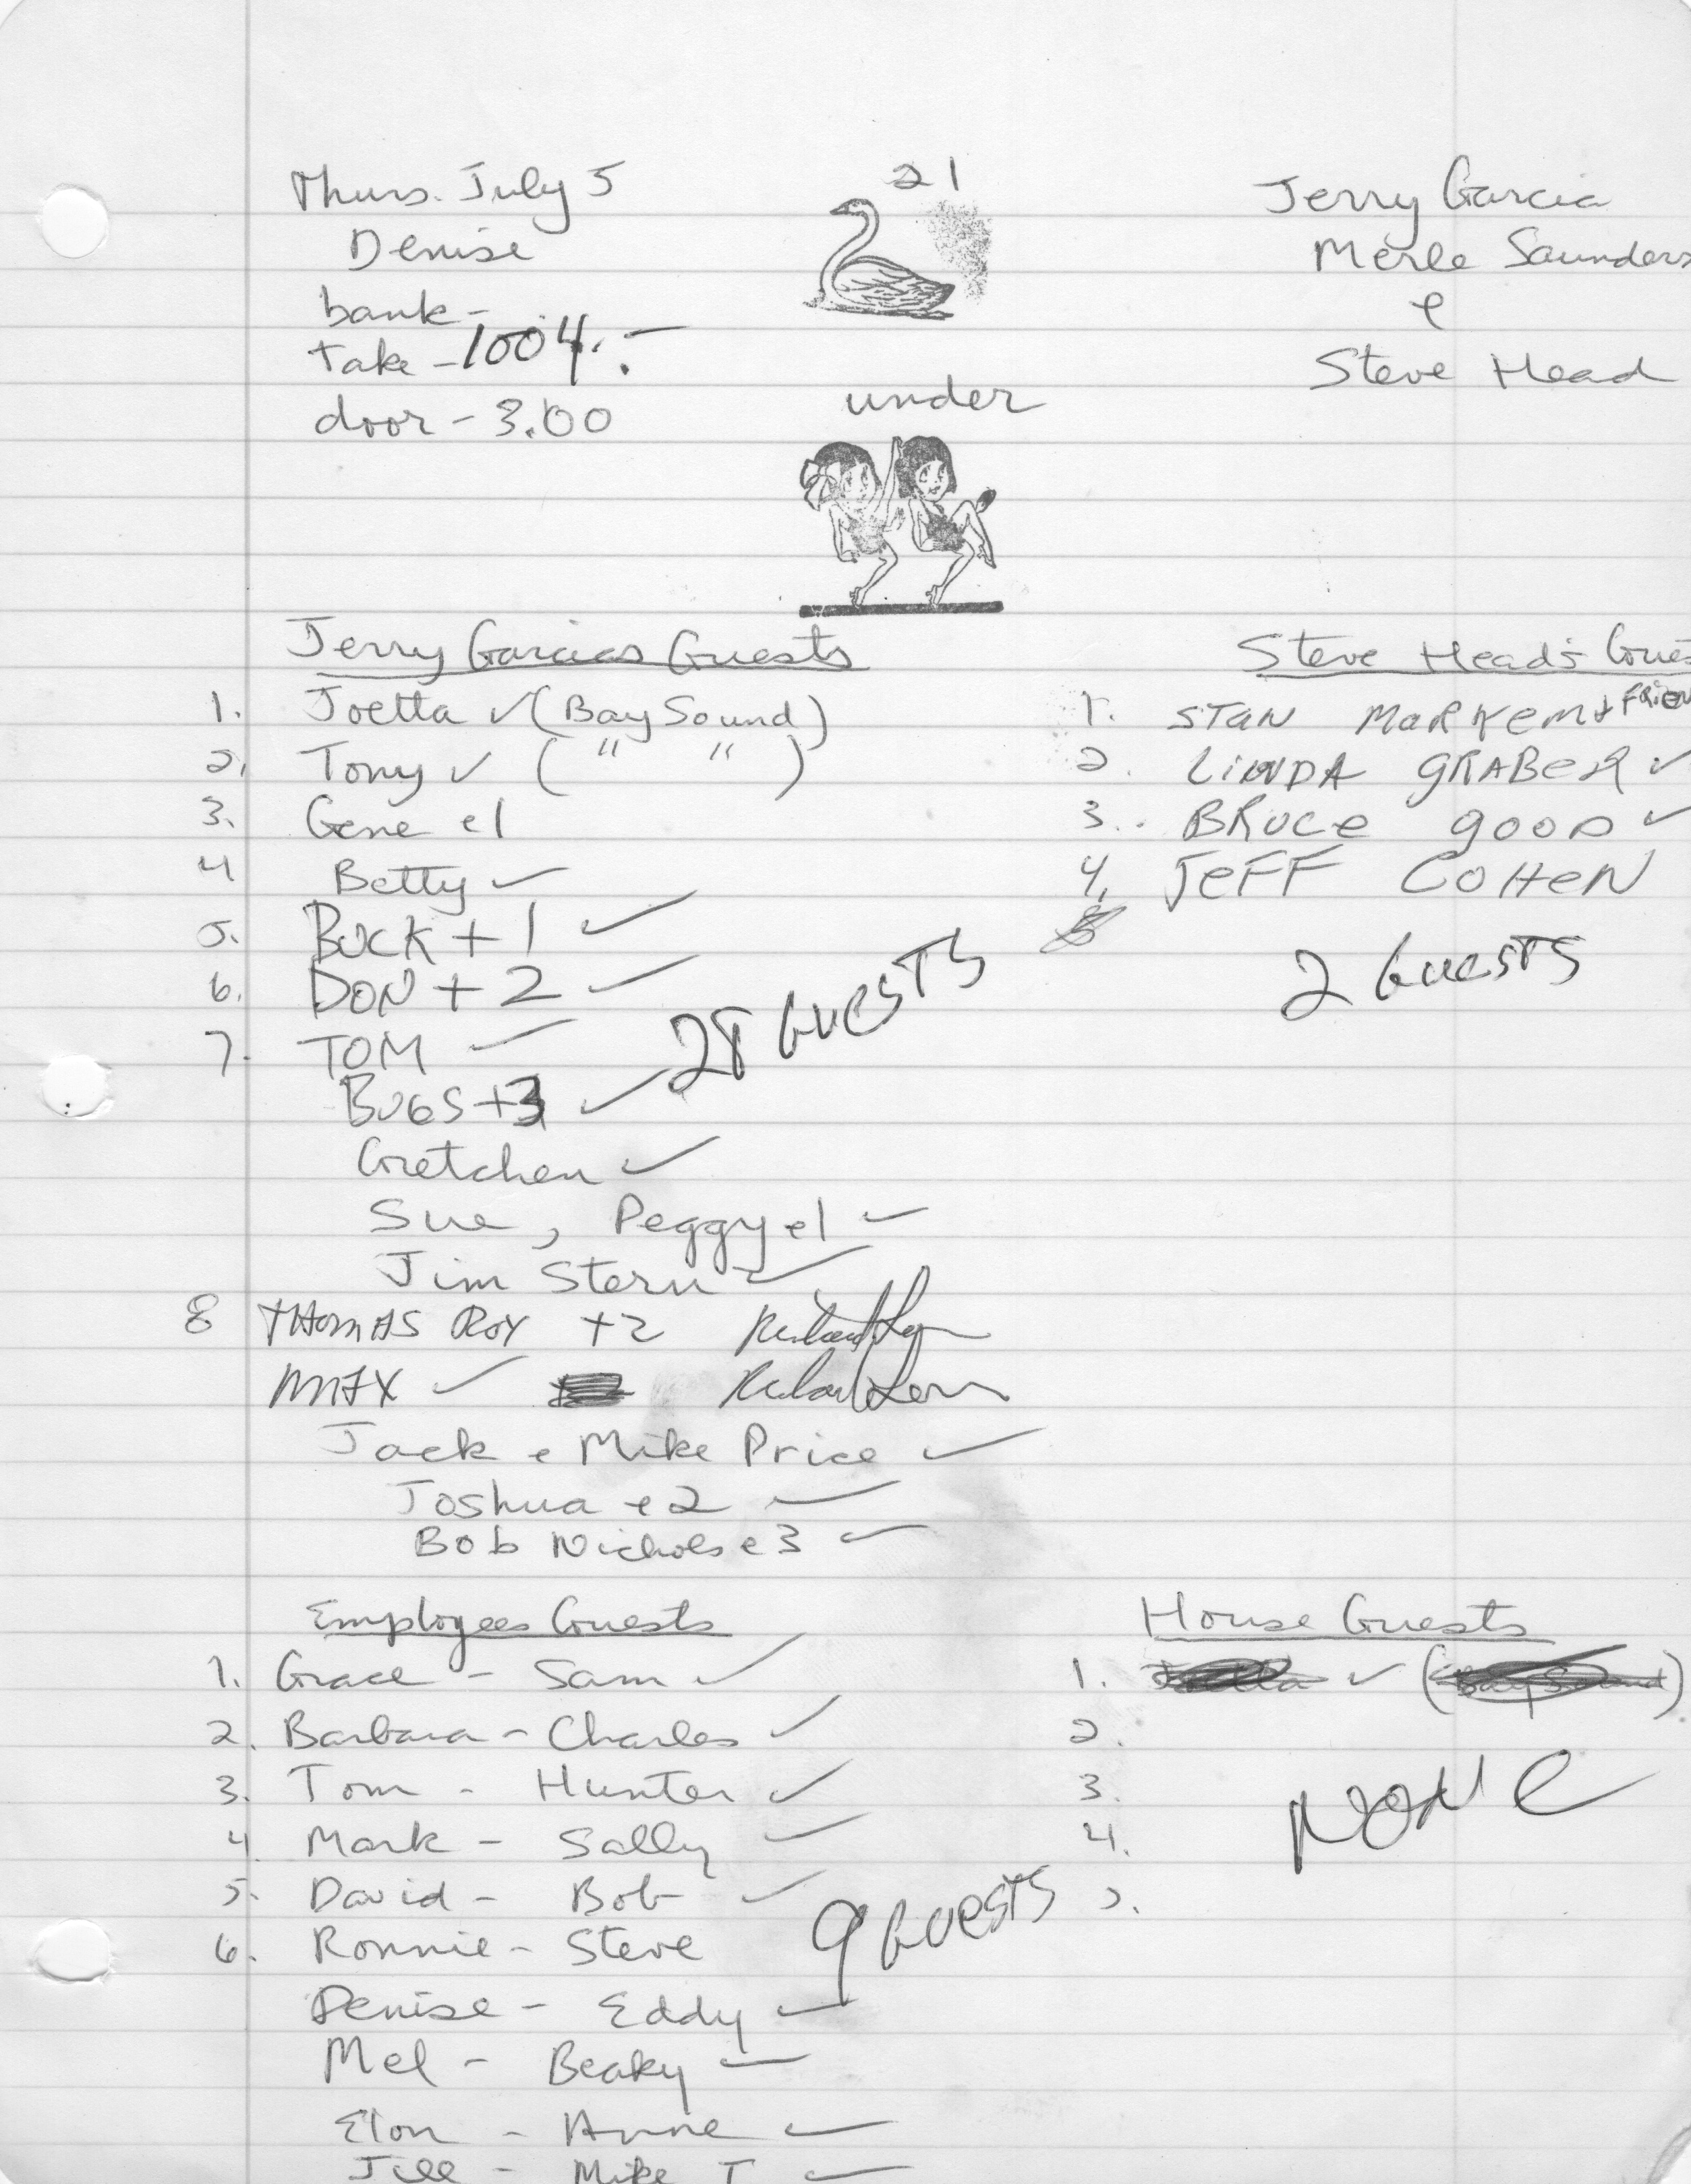 Thurs. July 5
Denise
bank -
take - 1004.-
door - 3.00
21
under
Jerry Garcia
Merle Saunders
e
Steve Head
Jerry Garcias Guests
1. Joetta ✓ (Bay Sound)
2. Tony ✓ ( " " )
3. Gene e1
4 Betty ✓
5. BUCK + 1 ✓
6. DON + 2 ✓
7. TOM ✓
BUGS +3 ✓
Gretchen ✓
Sue, Peggy e1 ✓
Jim Stern ✓
8 THOMAS ROY +2
MAX ✓
Jack e Mike Price ✓
Joshua e2 ✓
Bob Nichols e3 ✓
28 GUESTS
Steve Head's Gues
1. STAN MARKEM + FRIEN
2. LINDA GRABER ✓
3. BRUCE GOOD ✓
4. JEFF COHEN
2 GUESTS
Employees Guests
1. Grace - Sam ✓
2. Barbara - Charles ✓
3. Tom - Hunter ✓
4. Mark - Sally ✓
5. David - Bob ✓
6. Ronnie - Steve
Denise - Eddy ✓
Mel - Beaky ✓
Elon - Anne ✓
Jill - Mike T ✓
9 GUESTS
House Guests
1. ✓
2.
3.
4.
5.
NONE